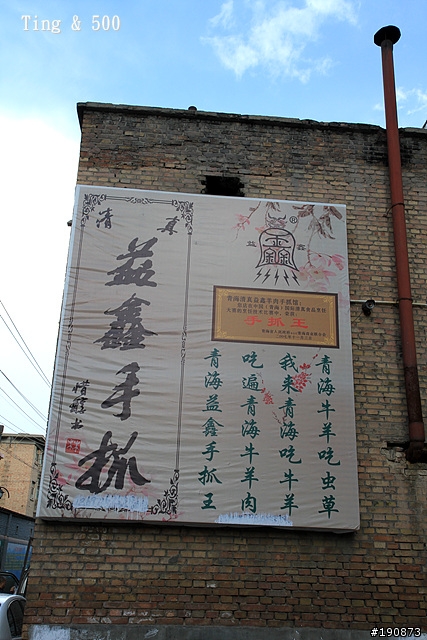 Ting & 500
清真
益鑫手抓
益 鑫
®
手抓王
青海牛羊吃虫草
我来青海吃牛羊
吃遍青海牛羊肉
青海益鑫手抓王
#190873